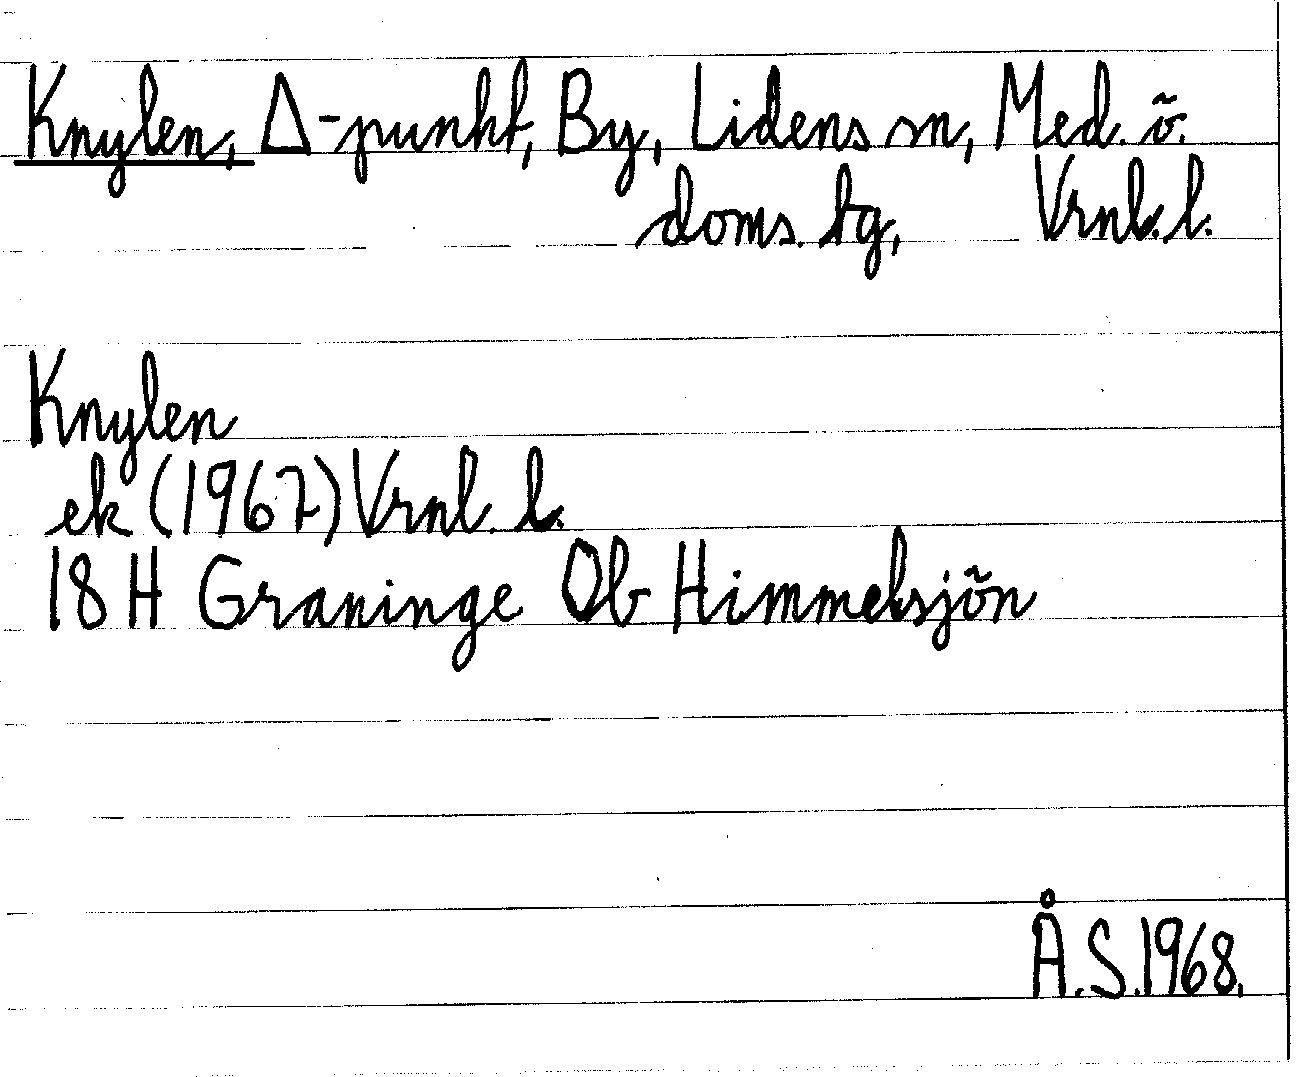 Knylen, Δ-punkt, By, Lidens sn, Med. ö.
doms. tg, Vrnl. l.
Knylen
ek (1967) Vrnl. l.
18 H Graninge Ob Himmelsjön
Å.S.1968.